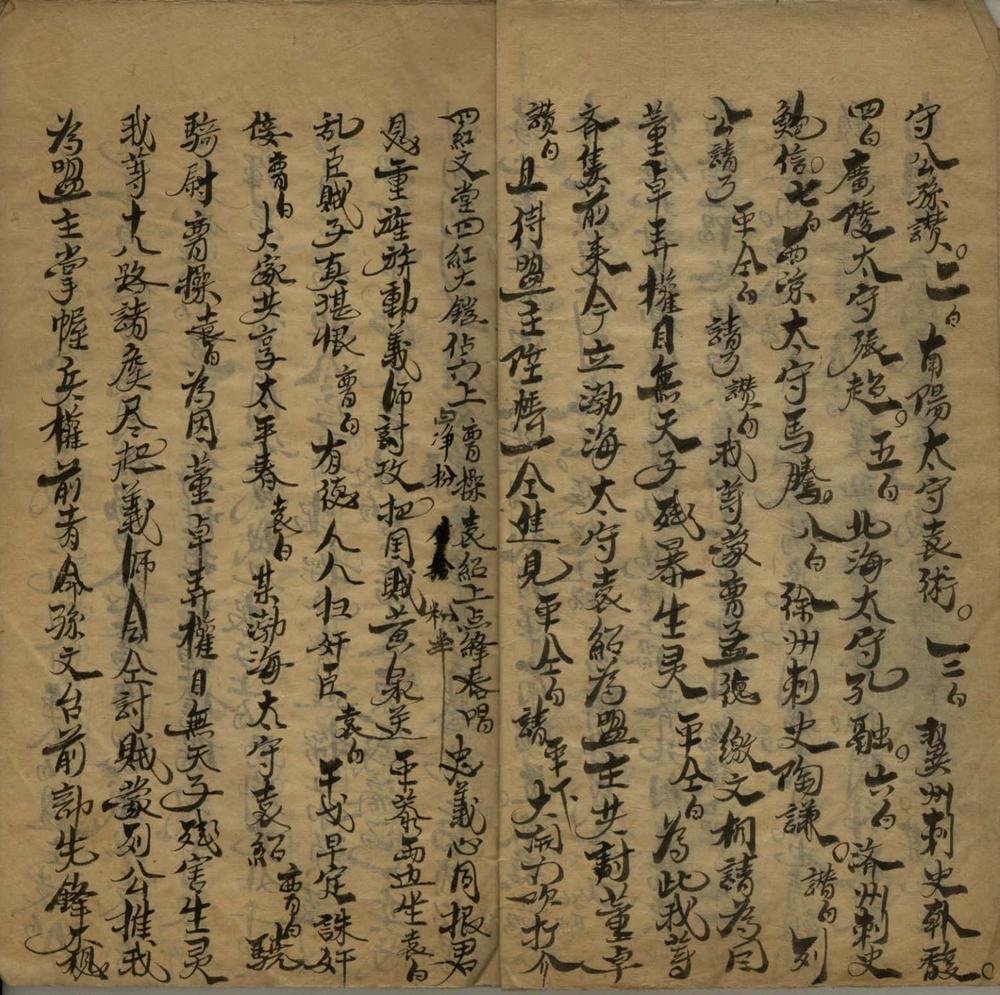 守公孫讚。二白南陽太守袁術。三白冀州刺史韩馥。
四白廣陵太守張超。五白北海太守孔融。六白济州刺史
鲍信。七白西凉太守馬騰。八白徐州刺史陶謙。讚白列
公請了平仝白請了讚白我等蒙曹孟德檄文相請為因
董卓弄權目無天子残暴生灵平仝白為此我等
齐集前来今立渤海太守袁紹為盟主共討董卓
讚白且待盟主陞帳一仝進見平仝白請平下大開門吹打介
四紅文堂四紅大鎧佔門上曹操袁紹上点絳唇唱忠義心同恨君
見重旌旂動義師討攻把国賊黄泉送平岺西边坐袁白
乱臣賊子真堪恨曹白有德人人扫奸臣袁白干戈早定誅奸
佞曹白大家共享太平春袁白某渤海太守袁紹曹白驍
騎尉曹操袁白為因董卓弄權目無天子残害生灵
我等十八路諸矦尽起義師仝討賊蒙列公推我
為盟主掌握兵權前者命孫文台前部先鋒